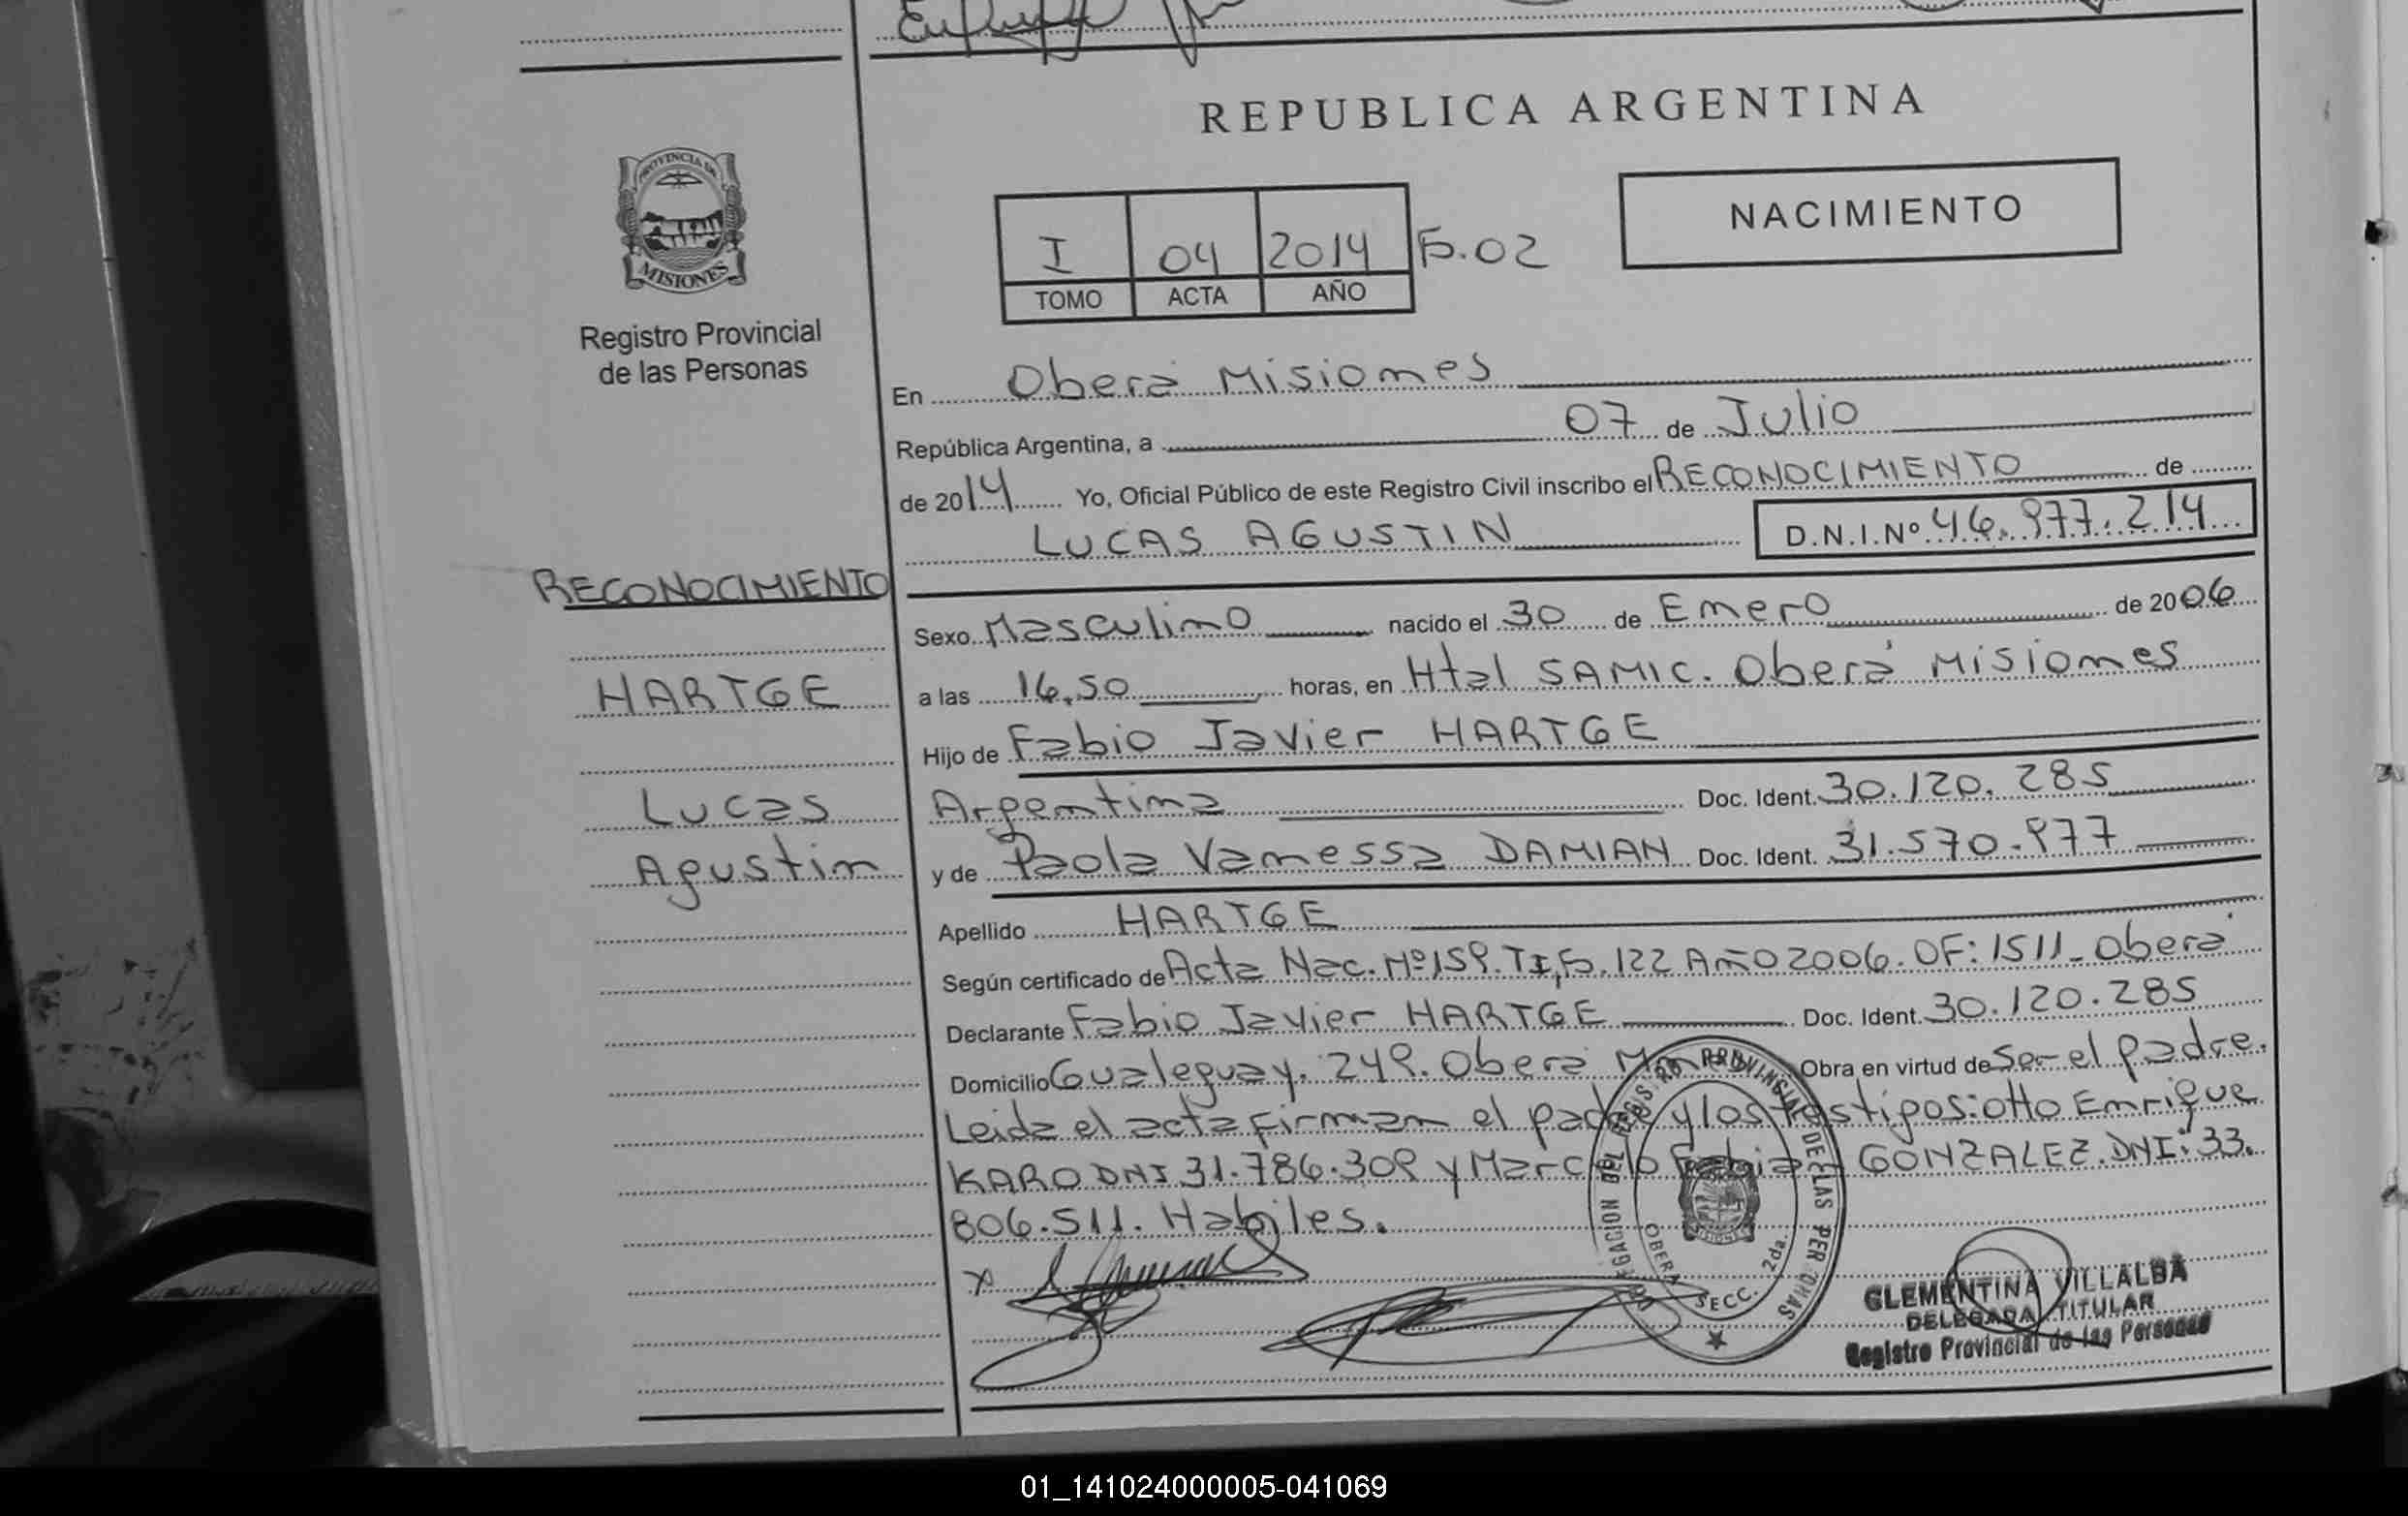 REPUBLICA ARGENTINA
PROVINCIA DE
MISIONES
Registro Provincial
de las Personas
NACIMIENTO
I 04 2014 Fo.02
TOMO ACTA AÑO
En Oberá Misiones
República Argentina, a 07 de Julio
de 2014 Yo, Oficial Público de este Registro Civil inscribo el RECONOCIMIENTO de
LUCAS AGUSTIN D.N.I.Nº 46.977.214
RECONOCIMIENTO
HARTGE
Lucas
Agustin
Sexo Masculino nacido el 30 de Enero de 2006
a las 16,50 horas, en Htal SAMIC. Oberá Misiones
Hijo de Fabio Javier HARTGE
Argentina Doc. Ident. 30.120.285
y de Paola Vanessa DAMIAN Doc. Ident. 31.570.977
Apellido HARTGE
Según certificado de Acta Nac. Nº 159. TI, Fo. 122 Año 2006. OF: 1511_ Oberá
Declarante Fabio Javier HARTGE Doc. Ident. 30.120.285
Domicilio Gualeguay. 249. Oberá Obra en virtud de Ser el padre.
Leida el acta Firman el padre y los testigos: Otto Enrique
KARO DNI 31.786.309 y Marcelo Fabian GONZALEZ. DNI: 33.
806.511. Habiles.
x
DELEGACION DEL REGISTRO PROVINCIAL DE LAS PERSONAS
OBERA SECC. 2da.
MISIONES
CLEMENTINA VILLALBA
DELEGADA TITULAR
Registro Provincial de las Personas
01_141024000005-041069